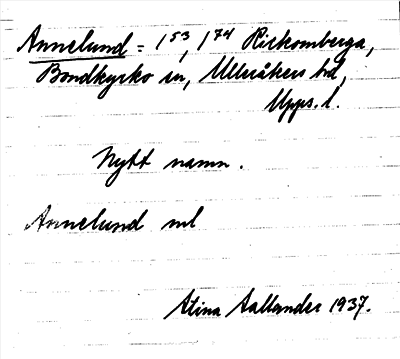 Annelund = 1⁵³, 1⁷⁴ Rickomberga,
Bondkyrko sn, Ulleråkers hd,
Upps. l.
Nytt namn.
Annelund ml
Stina Sallander 1937.